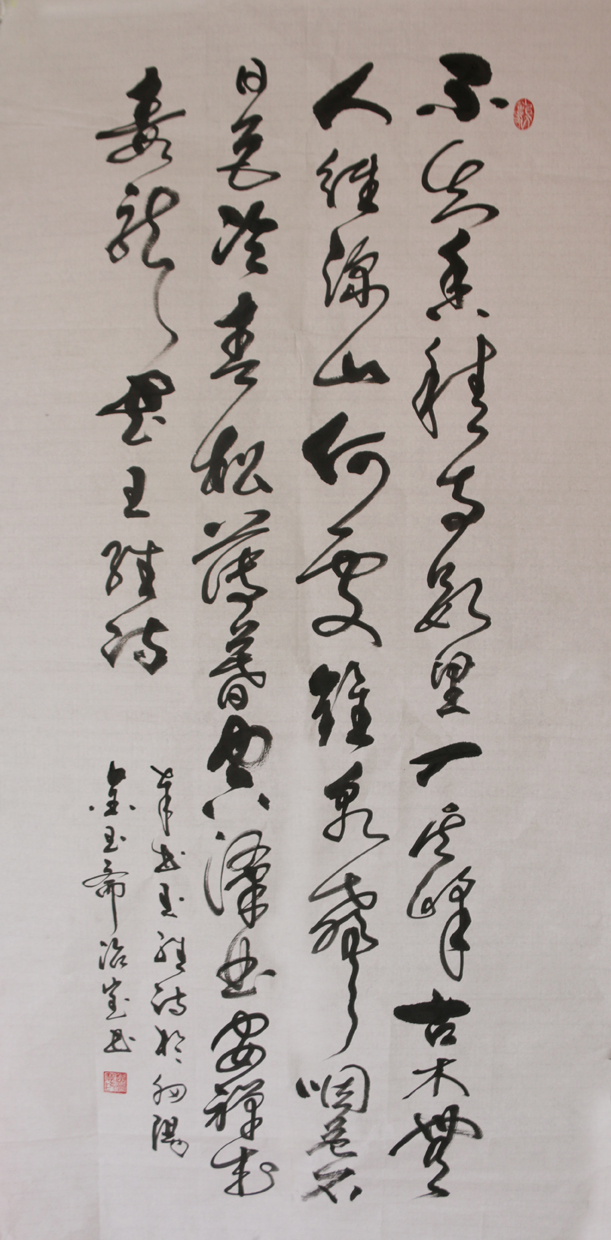 不知香積寺數里入云峰古木無
人徑深山何處鐘泉聲咽危石
日色冷青松薄暮空潭曲安禪制
毒龍 王維詩
書王維詩於陽
金玉齋書